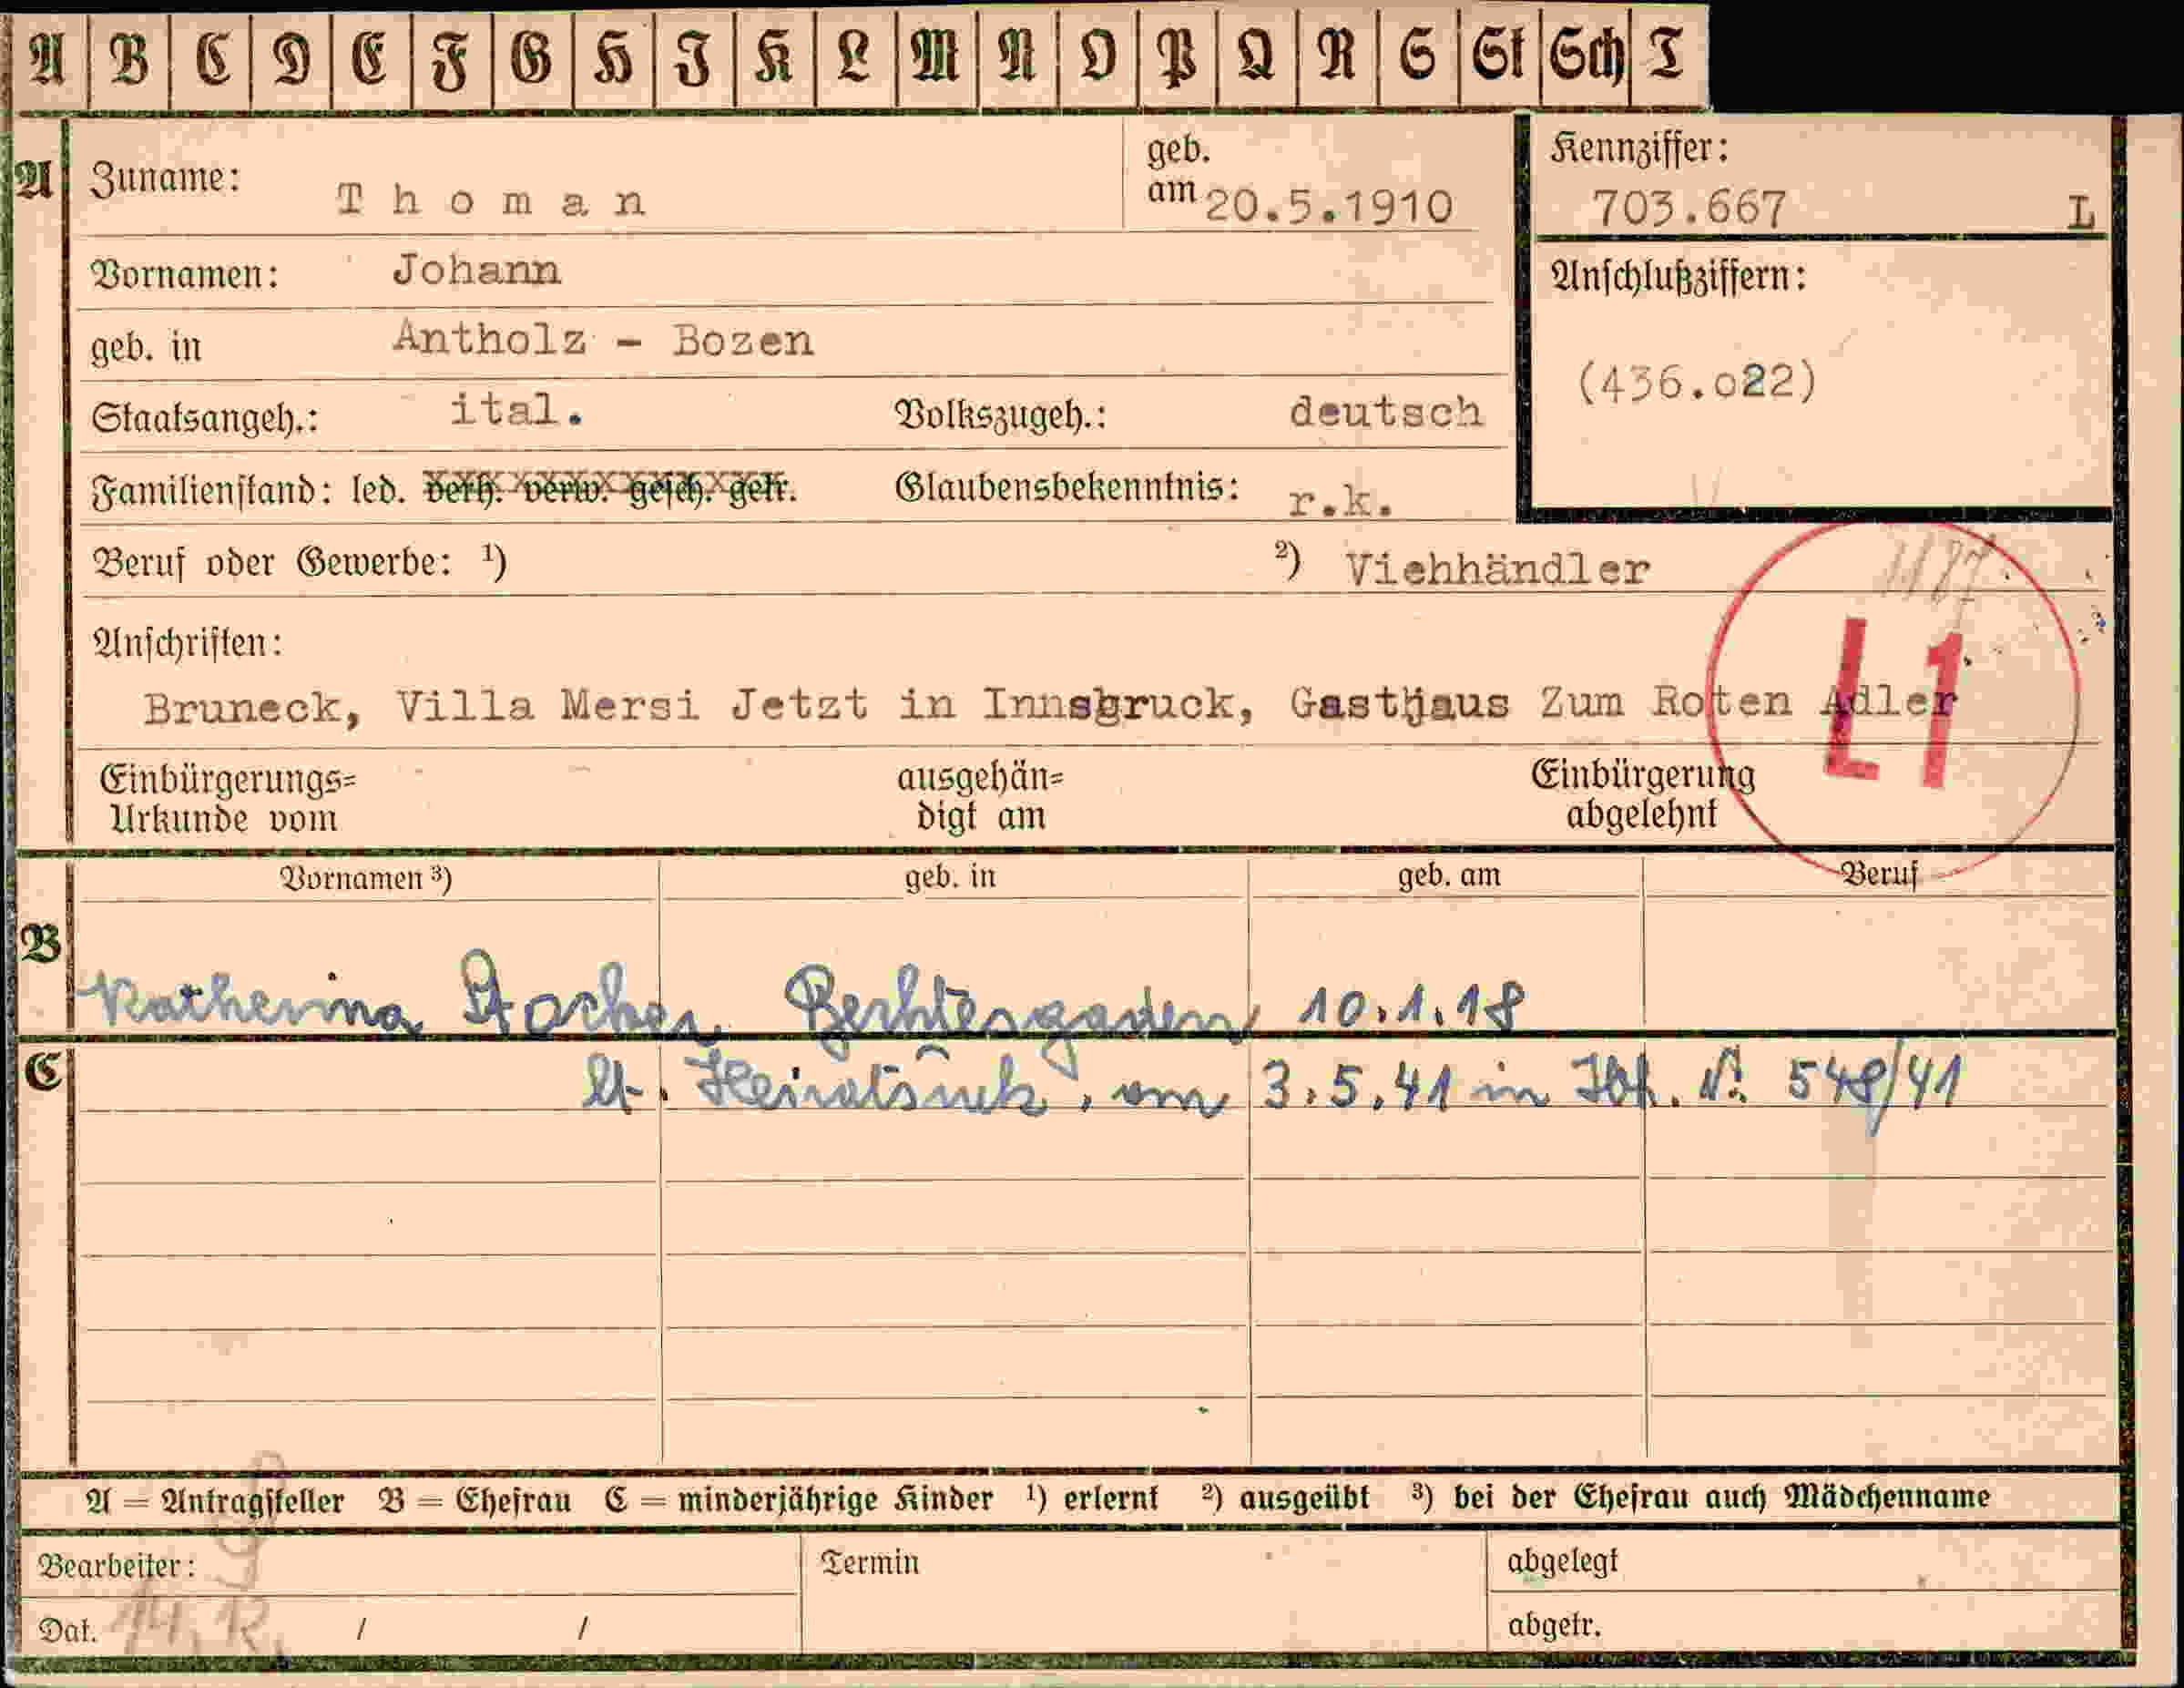 A B C D E F G H I K L M N O P Q R S St Sch T
A Zuname: Thoman geb. am 20.5.1910
Kennziffer: 703.667 L
Vornamen: Johann
Anschlußziffern:
geb. in Antholz - Bozen
(436.o22)
Staatsangeh.: ital. Volkszugeh.: deutsch
Familienstand: led. verh. verw. gesch. getr. Glaubensbekenntnis: r.k.
Beruf oder Gewerbe: ¹) ²) Viehhändler
1187
Anschriften:
L1
Bruneck, Villa Mersi Jetzt in Innsbruck, Gasthaus Zum Roten Adler
Einbürgerungs= Urkunde vom ausgehän= digt am Einbürgerung abgelehnt
Vornamen ³) geb. in geb. am Beruf
B
Katherina Stocker Berchtesgaden 10.1.18
C
lt. Heiratsurk. vom 3.5.41 in Ibk. Nr. 548/41
A = Antragsteller B = Ehefrau C = minderjährige Kinder ¹) erlernt ²) ausgeübt ³) bei der Ehefrau auch Mädchenname
Bearbeiter: Termin abgelegt
Dat. 14.12. / / abgetr.